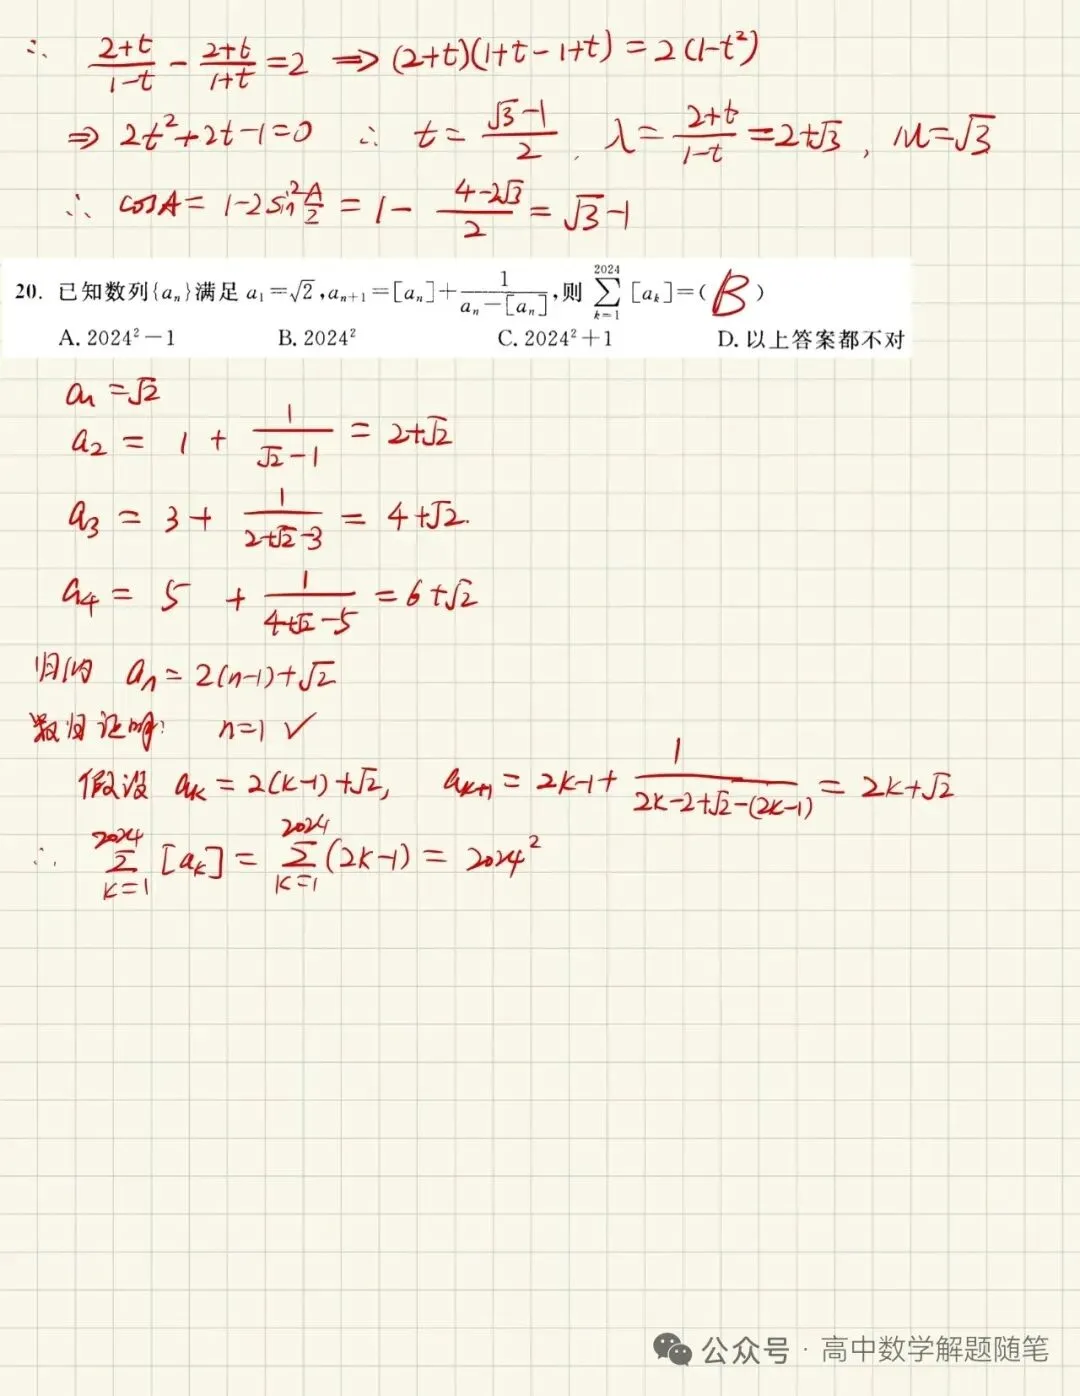 ∴ (2+t)/(1-t) - (2+t)/(1+t) = 2 ⇒ (2+t)(1+t-1+t) = 2(1-t²)
⇒ 2t²+2t-1=0 ∴ t = (√3-1)/2, λ = (2+t)/(1-t) = 2+√3, μ=√3
∴ cosA = 1-2sin²(A/2) = 1 - (4-2√3)/2 = √3-1
20. 已知数列{aₙ}满足 a₁=√2, aₙ₊₁=[aₙ]+1/(aₙ-[aₙ]), 则 ∑_{k=1}^{2024} [aₖ]=( B )
A. 2024²-1 B. 2024² C. 2024²+1 D. 以上答案都不对
a₁ = √2
a₂ = 1 + 1/(√2-1) = 2+√2
a₃ = 3 + 1/(2+√2-3) = 4+√2.
a₄ = 5 + 1/(4+√2-5) = 6+√2
归纳 aₙ = 2(n-1)+√2
数归证明: n=1 ✓
假设 aₖ = 2(k-1)+√2, aₖ₊₁ = 2k-1+ 1/(2k-2+√2-(2k-1)) = 2k+√2
∴ ∑_{k=1}^{2024} [aₖ] = ∑_{k=1}^{2024} (2k-1) = 2024²
公众号 · 高中数学解题随笔